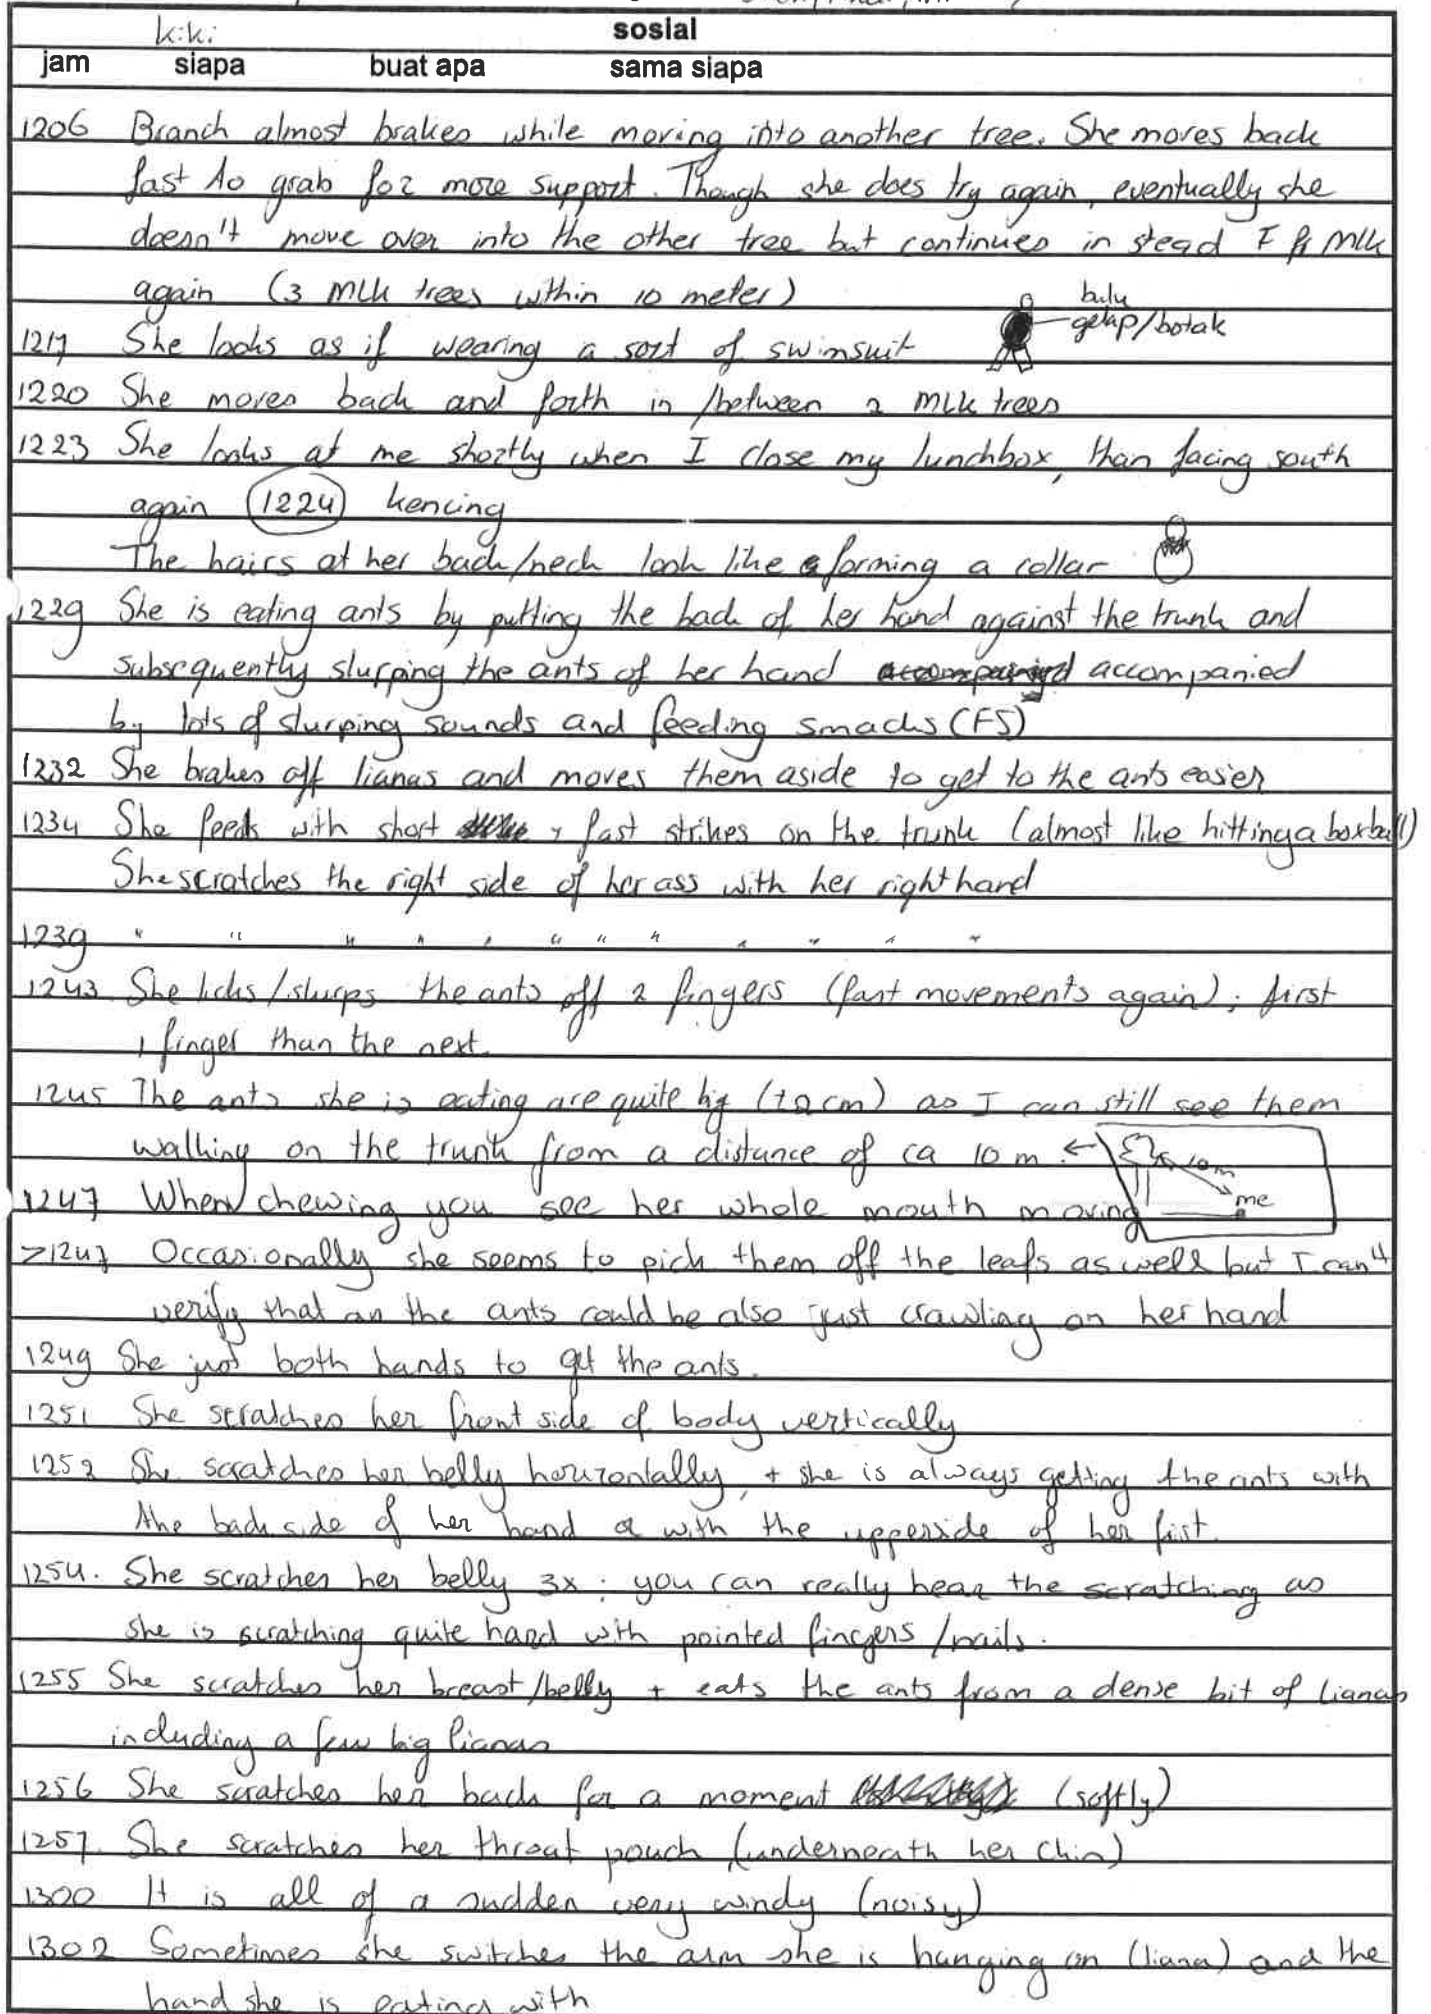 kiki sosial
jam siapa buat apa sama siapa
1206 Branch almost brakes while moving into another tree. She moves back
fast to grab for more support. Though she does try again, eventually she
doesn't move over into the other tree but continues in stead F fr MLK
again (3 MLK trees within 10 meter)
bulu
gelap/botak
1217 She looks as if wearing a sort of swimsuit
1220 She moves back and forth in /between 2 MLK trees
1223 She looks at me shortly when I close my lunchbox, than facing south
again 1224 kencing
The hairs at her back/neck look like forming a collar
1229 She is eating ants by putting the back of her hand against the trunk and
subsequently slurping the ants of her hand accompanied
by lots of slurping sounds and feeding smacks (FS)
1232 She brakes off lianas and moves them aside to get to the ants easier
1234 She feeds with short, fast strikes on the trunk (almost like hitting a boxball)
She scratches the right side of her ass with her right hand
1239 " " " " " " " " " " " "
1243 She licks/slurps the ants off 2 fingers (fast movements again); first
1 finger than the next.
1245 The ants she is eating are quite big (±2cm) as I can still see them
walking on the trunk from a distance of ca 10 m. ← 10m
me
1247 When chewing you see her whole mouth moving
>1247 Occasionally she seems to pick them off the leafs as well but I can't
verify that as the ants could be also just crawling on her hand
1249 She just both hands to get the ants.
1251 She scratches her front side of body vertically
1252 She scratches her belly hourizontally, + she is always getting the ants with
the back side of her hand or with the upperside of her fist.
1254. She scratches her belly 3x; you can really hear the scratching as
she is scratching quite hard with pointed fingers/nails.
1255 She scratches her breast/belly + eats the ants from a dense bit of lianas
including a few big lianas
1256 She scratches her back for a moment (softly)
1257. She scratches her throat pouch (underneath her chin)
1300 It is all of a sudden very windy (noisy)
1302 Sometimes she switches the arm she is hanging on (liana) and the
hand she is eating with